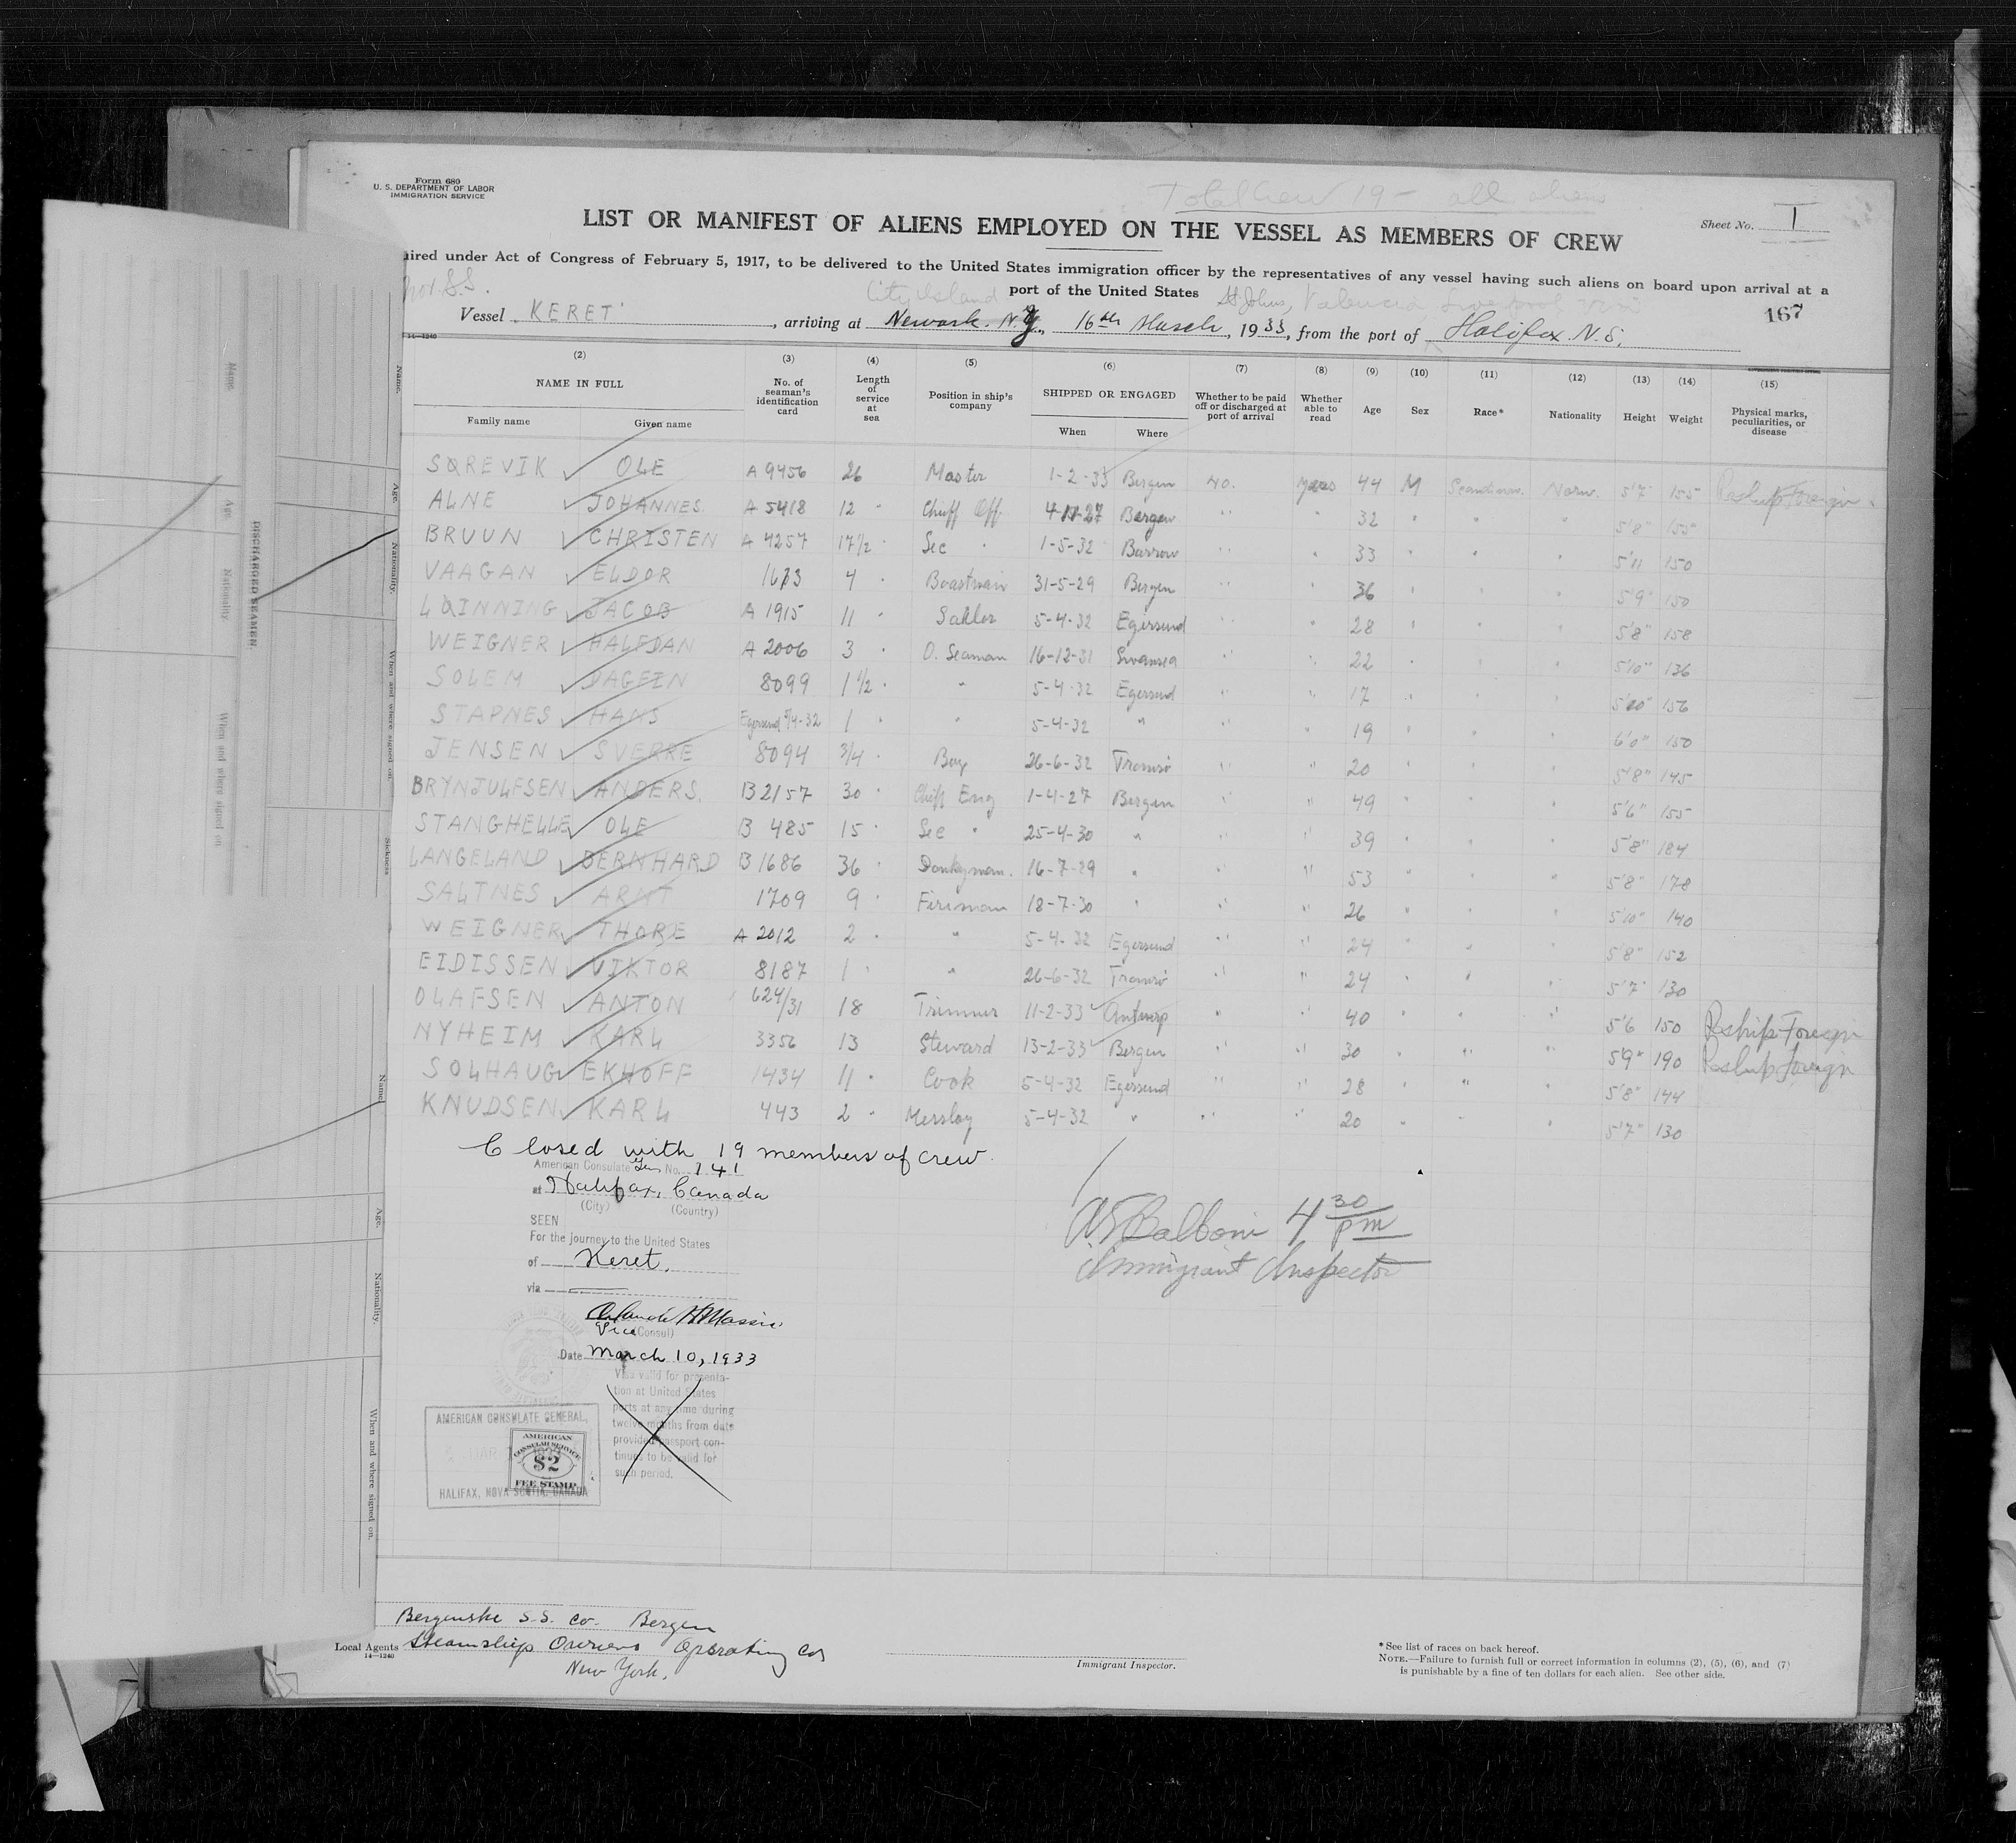 Form 680
U. S. DEPARTMENT OF LABOR
IMMIGRATION SERVICE
Total Crew 19 - all aliens
LIST OR MANIFEST OF ALIENS EMPLOYED ON THE VESSEL AS MEMBERS OF CREW
Sheet No. 1
ired under Act of Congress of February 5, 1917, to be delivered to the United States immigration officer by the representatives of any vessel having such aliens on board upon arrival at a
Nor. S.S. City Island port of the United States St Johns, Valencia, Liverpool
167
Vessel KERET, arriving at Newark. N.Y., 16th March, 1933, from the port of Halifax N.S.
14—1240
(2) (3) (4) (5) (6) (7) (8) (9) (10) (11) (12) (13) (14) (15)
NAME IN FULL No. of seaman's identification card Length of service at sea Position in ship's company SHIPPED OR ENGAGED Whether to be paid off or discharged at port of arrival Whether able to read Age Sex Race* Nationality Height Weight Physical marks, peculiarities, or disease
Family name Given name When Where
SØREVIK OLE A 9456 26 Master 1-2-33 Bergen no. yes 44 M Scandinav. Norw. 5'7" 155 Reship Foreign
ALNE JOHANNES A 5418 12 " Chieff Off. 4-11-27 Bergen " " 32 " " " 5'8" 155
BRUUN CHRISTEN A 4257 17½ " Sec " 1-5-32 Barrow " " 33 " " " 5'11 150
VAAGAN ELDOR 1673 4 " Boastwain 31-5-29 Bergen " " 36 " " " 5'9" 150
LØINNING JACOB A 1915 11 " Sailor 5-4-32 Egersund " " 28 " " " 5'8" 158
WEIGNER HALFDAN A 2006 3 " O. Seaman 16-12-31 Swansea " " 22 " " " 5'10" 136
SOLEM DAGFIN 8099 1½ " " 5-4-32 Egersund " " 17 " " " 5'10" 156
STAPNES HANS Egersund 5/4-32 1 " " 5-4-32 " " " 19 " " " 6'0" 150
JENSEN SVERRE 8094 3/4 " Boy 26-6-32 Tromsö " " 20 " " " 5'8" 145
BRYNJULFSEN ANDERS. B 2157 30 " Chieff Eng 1-4-27 Bergen " " 49 " " " 5'6" 155
STANGHELLE OLE B 485 15 " Sec " 25-4-30 " " " 39 " " " 5'8" 184
LANGELAND BERNHARD B 1686 36 " Donkeyman. 16-7-29 " " " 53 " " " 5'8" 178
SALTNES ARNT 1709 9 " Fireman 18-7-30 " " " 26 " " " 5'10" 140
WEIGNER THORE A 2012 2 " " 5-4-32 Egersund " " 24 " " " 5'8" 152
EIDISSEN VIKTOR 8187 1 " " 26-6-32 Tromsö " " 24 " " " 5'7" 130
OLAFSEN ANTON 624/31 18 Trimmer 11-2-33 Antwerp " " 40 " " " 5'6 150 Reship Foreign
NYHEIM KARL 3356 13 Steward 13-2-33 Bergen " " 30 " " " 5'9" 190 Reship Foreign
SOLHAUG EKHOFF 1434 11 " Cook 5-4-32 Egersund " " 28 " " " 5'8" 144
KNUDSEN KARL 443 2 " Messboy 5-4-32 " " " 20 " " " 5'7" 130
Closed with 19 members of crew.
American Consulate Gen No. 141
at Halifax, Canada
(City) (Country)
SEEN
For the journey to the United States
of Keret.
via
Vice (Consul)
Date March 10, 1933
Visa valid for presenta-
tion at United States
ports at any time during
twelve months from date
provided passport con-
tinues to be valid for
such period.
4 30 pm
Immigrant Inspector
AMERICAN CONSULATE GENERAL,
AMERICAN
CONSULAR SERVICE
$2
FEE STAMP
HALIFAX, NOVA SCOTIA, CANADA
Bergenske S.S. Co. Bergen
Local Agents Steamship Owners Operating Co
14—1240
New York.
Immigrant Inspector.
* See list of races on back hereof.
NOTE.—Failure to furnish full or correct information in columns (2), (5), (6), and (7)
is punishable by a fine of ten dollars for each alien. See other side.
Name.
Age.
Nationality.
When and where signed on.
Sickness
DISCHARGED SEAMEN.
Name
Age.
Nationality.
When and where signed on.
Name
Age.
Nationality.
When and where signed on.